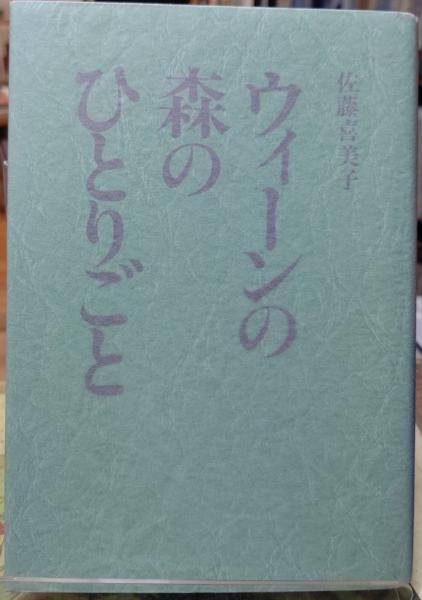 佐藤喜美子
ウィーンの
森の
ひとりごと